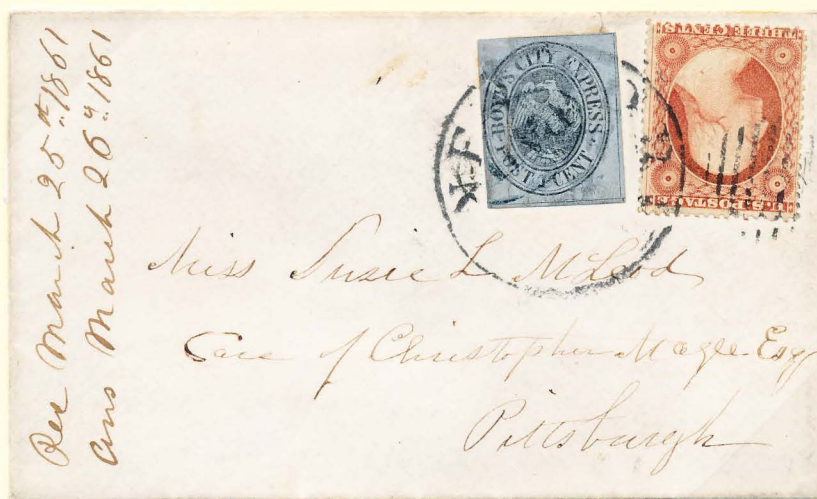 Rec March 25th 1861
Ans March 26th 1861
BOYD'S CITY EXPRESS
POST 1 CENT
THREE CENTS
U.S. POSTA
Miss Susie L. McLeod
Care of Christopher Magee Esq
Pittsburgh